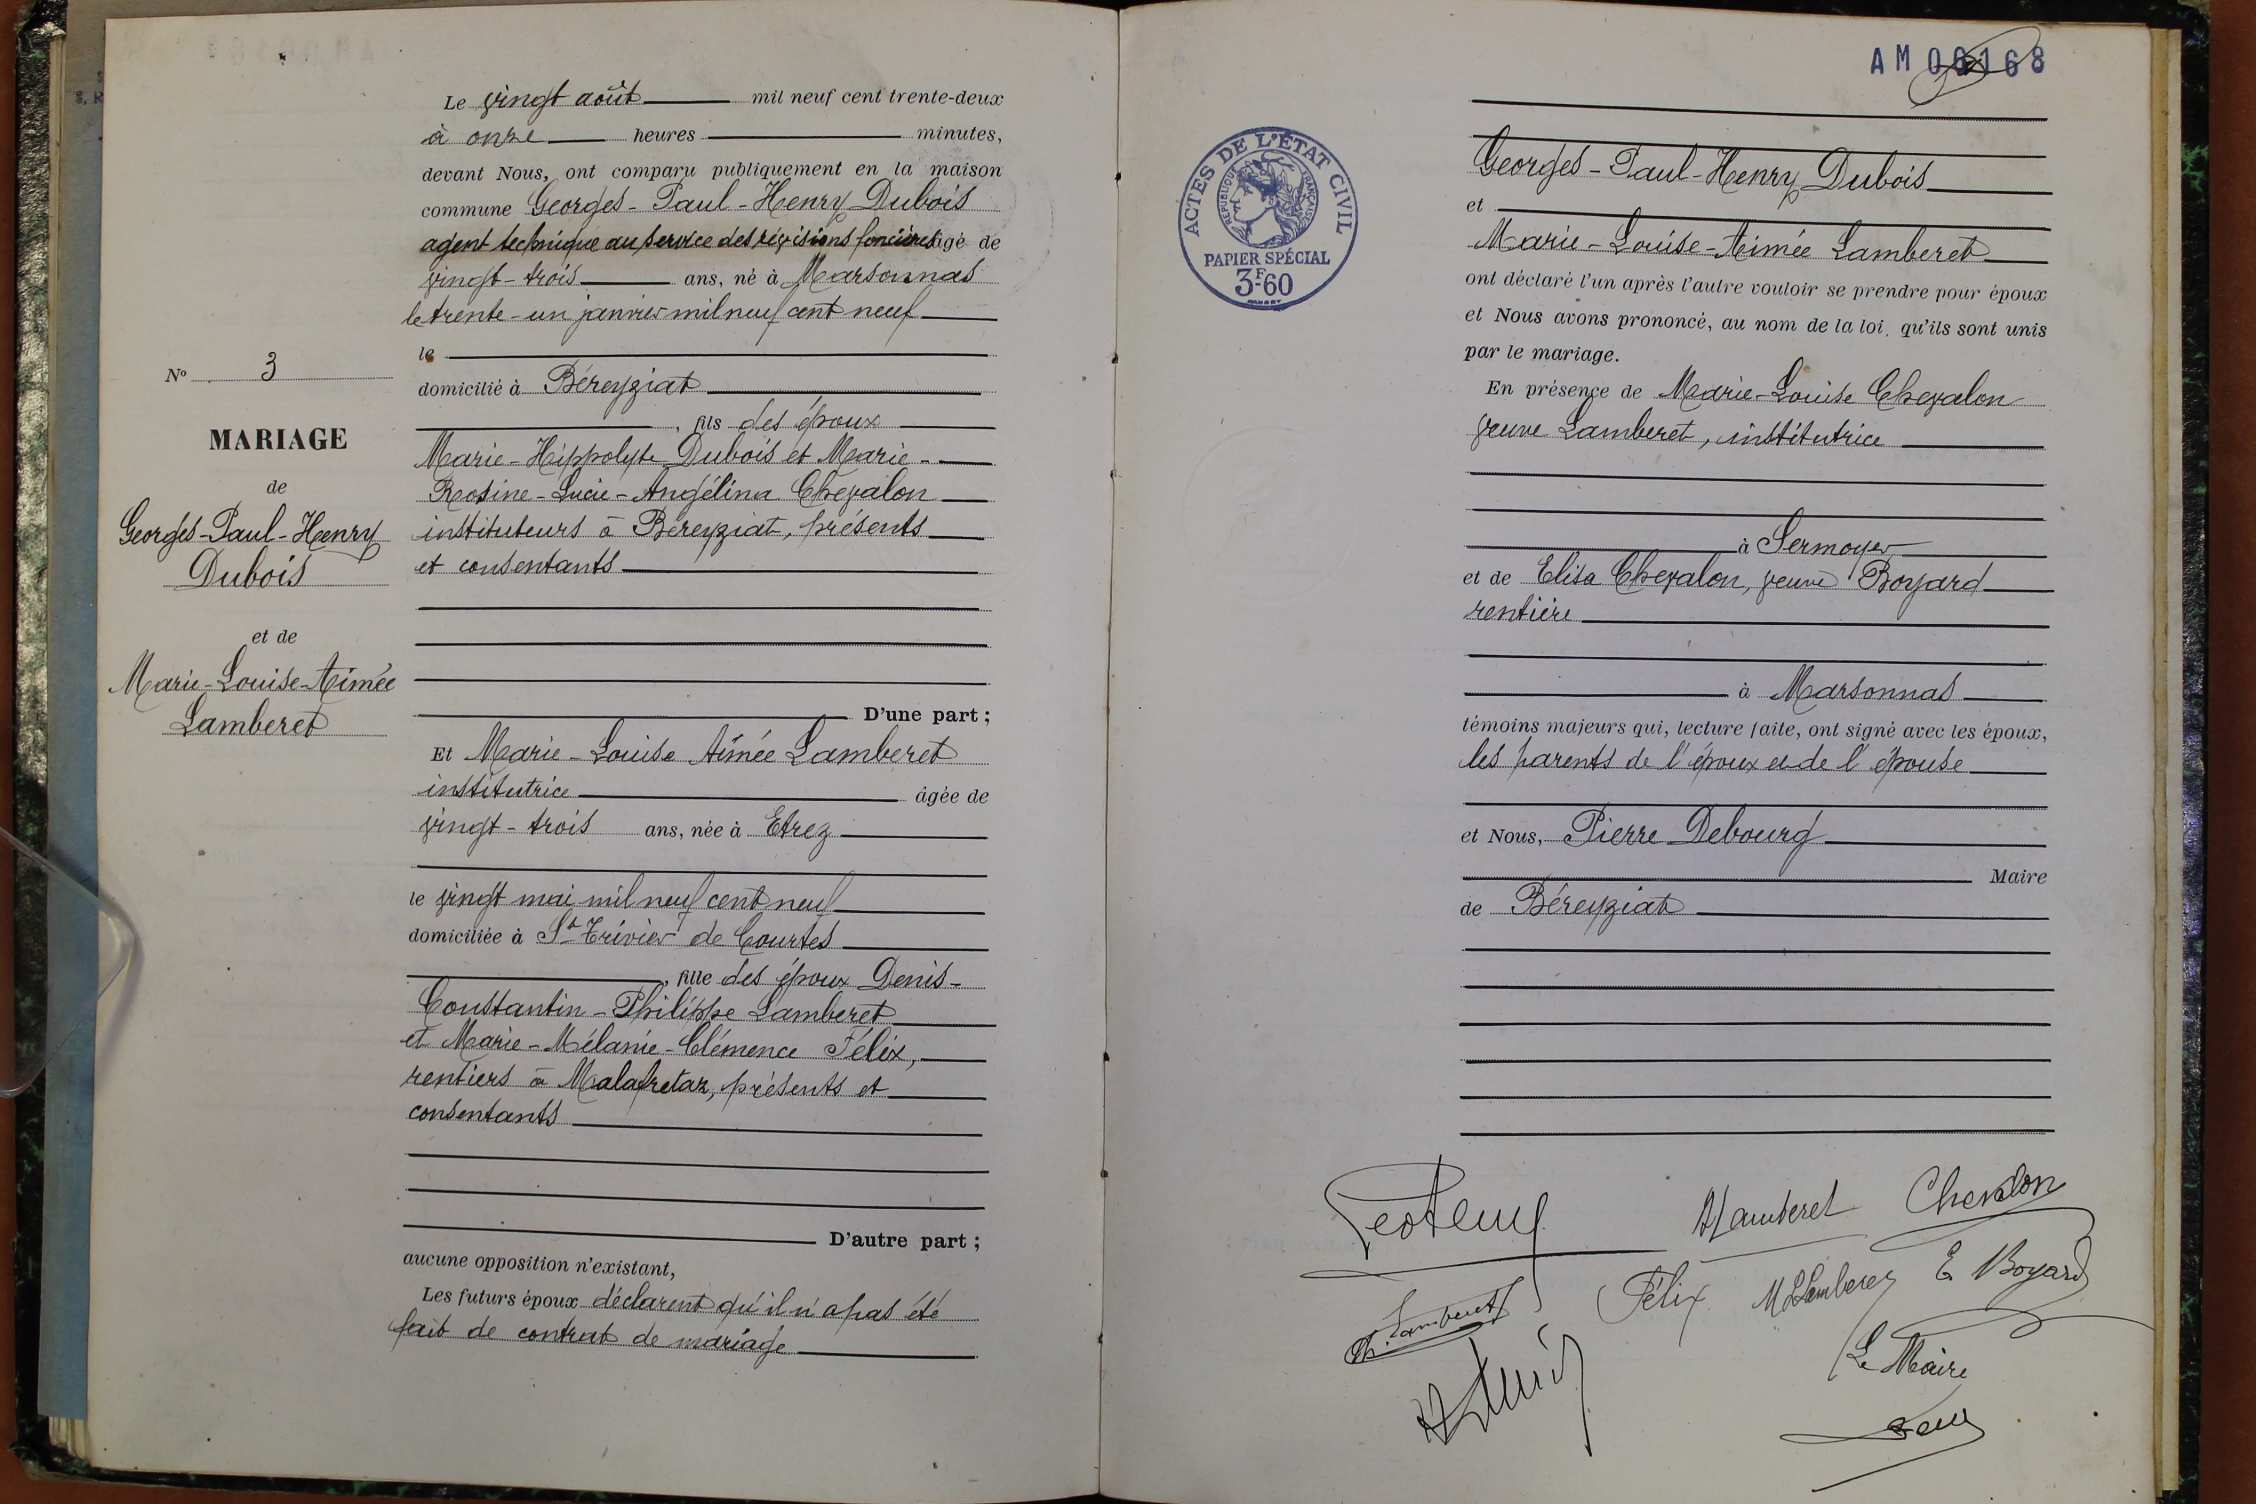 Le vingt août mil neuf cent trente-deux
à onze heures minutes,
devant Nous, ont comparu publiquement en la maison
commune Georges-Paul-Henry Dubois
agent technique au service des révisions foncières âgé de
vingt-trois ans, né à Marsonnas
le trente-un janvier mil neuf cent neuf
le
domicilié à Béreyziat
, fils des époux
Marie-Hippolyte Dubois et Marie-
Rosine-Lucie-Angélina Chevalon
instituteurs à Béreyziat, présents
et consentants
D'une part ;
Et Marie-Louise Aimée Lamberet
institutrice âgée de
vingt-trois ans, née à Etrez
le vingt mai mil neuf cent neuf
domiciliée à St Trivier de Courtes
, fille des époux Denis-
Constantin-Philippe Lamberet
et Marie-Mélanie-Clémence Félix,
rentiers à Malafretaz, présents et
consentants
D'autre part ;
aucune opposition n'existant,
Les futurs époux déclarent qu'il n'a pas été
fait de contrat de mariage
No 3
MARIAGE
de
Georges-Paul-Henry
Dubois
et de
Marie-Louise-Aimée
Lamberet
AM 00168
ACTES DE L'ÉTAT CIVIL
RÉPUBLIQUE FRANÇAISE
PAPIER SPÉCIAL
3F60
Georges-Paul-Henry Dubois
et
Marie-Louise-Aimée Lamberet
ont déclaré l'un après l'autre vouloir se prendre pour époux
et Nous avons prononcé, au nom de la loi, qu'ils sont unis
par le mariage.
En présence de Marie-Louise Chevalon
veuve Lamberet, institutrice
à Sermoyer
et de Elisa Chevalon, veuve Boyard
rentière
à Marsonnas
témoins majeurs qui, lecture faite, ont signé avec les époux,
les parents de l'époux et de l'épouse
et Nous, Pierre Debourg
Maire
de Béreyziat
Lamberet Chevalon
Félix M L Lamberet E Boyard
Ph. Lamberet
Le Maire